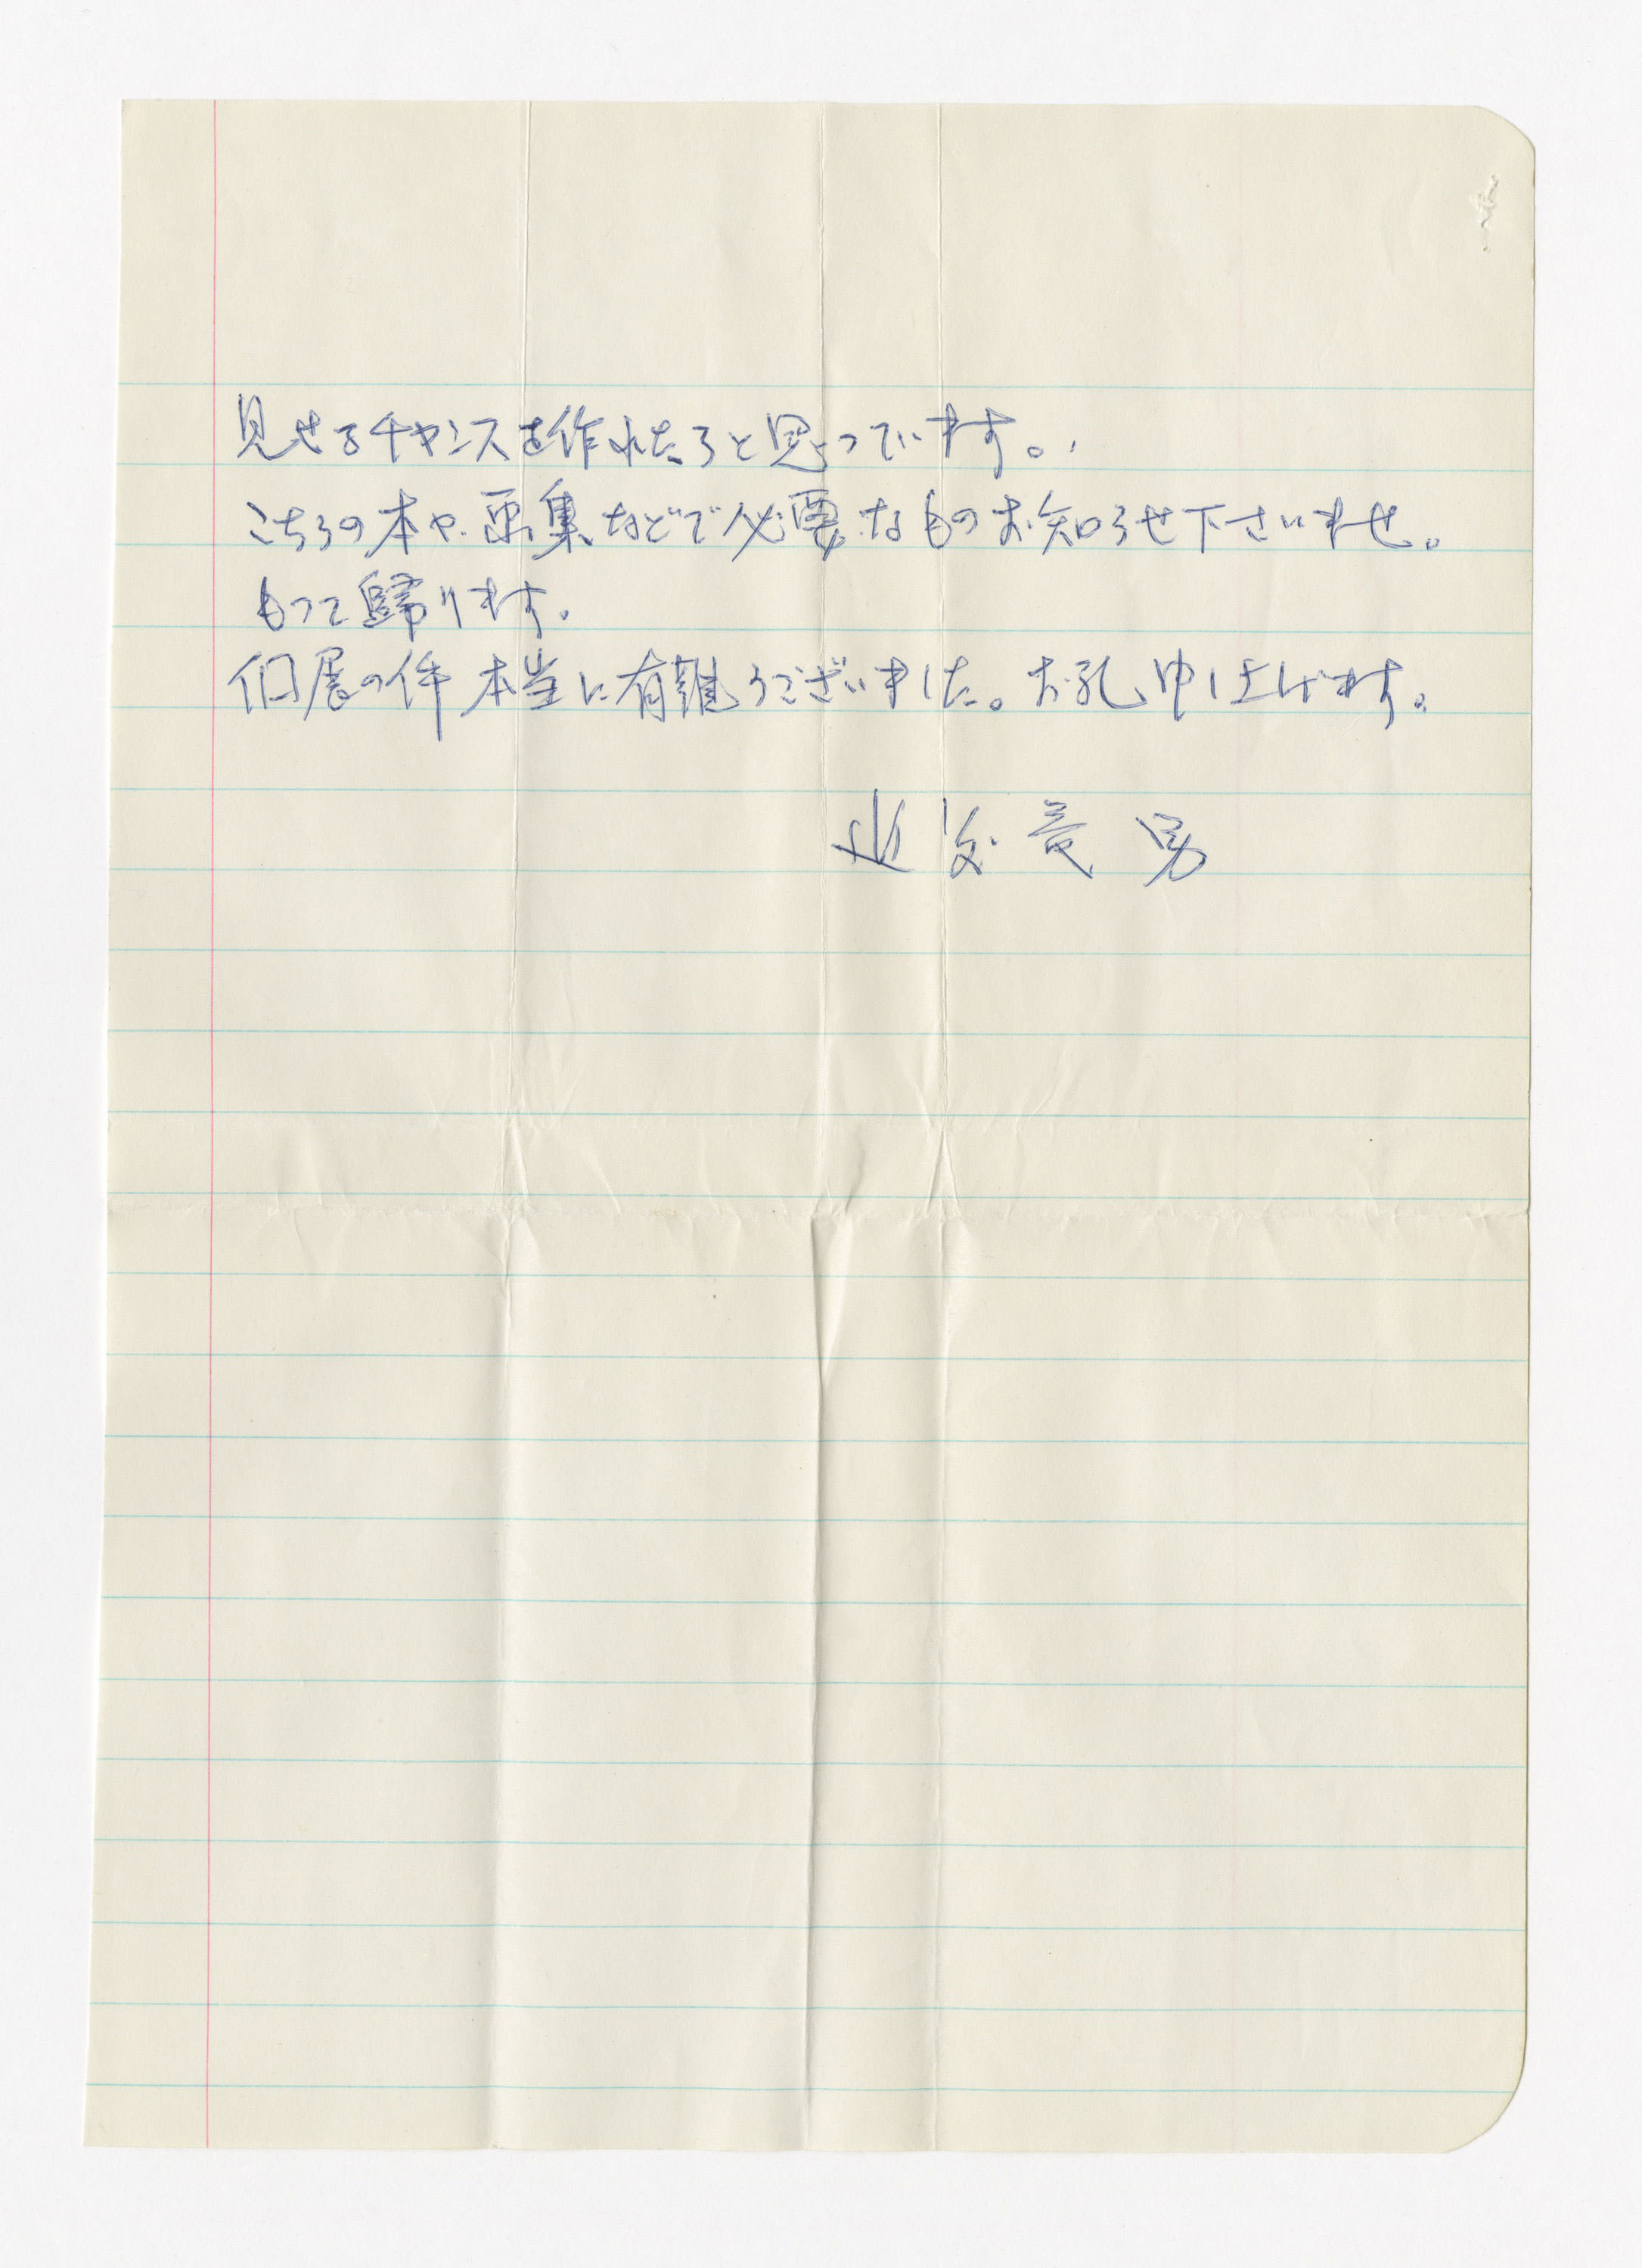 見せるチャンスを作れたらと思っています。
こちらの本や画集などで必要なものお知らせ下さいませ。
もって帰ります。
個展の件 本当に有難うございました。お礼申し上げます。
近藤竜男